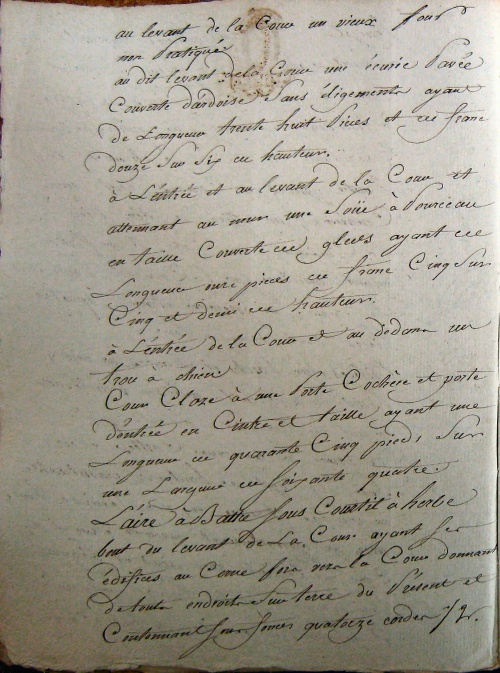 au levant de la Cour un vieux four
non Pratiqué
au dit levant de la Cour une écurie Pavée
Couverte dardoise Sans éligements ayant
de Longueur trente huit Pieds et en franc
douze Sur Six en hauteur.
à L'entrée et au levant de la Cour et
attennant au mur une Soüe à Pourceau
en taille Couverte en gleds ayant en
Longueur onze pieds en franc Cinq Sur
Cinq et demi en hauteur.
à L'entrée de la Cour et au dedans un
trou à chien
Cour Cloze à une Porte Cochère et porte
d'entrée en Cintre et taille ayant une
Longueur de quarante Cinq pieds Sur
une Largeur de Soixante quatre
L'aire à Battre Sous Courtil à herbe
bout du levant de La Cour ayant ses
édifices au Cerne fors vers la Cour donnant
de touts endroits Sur terre du Présent et
Contennant Sous fonds quatorze cordes 1/2.